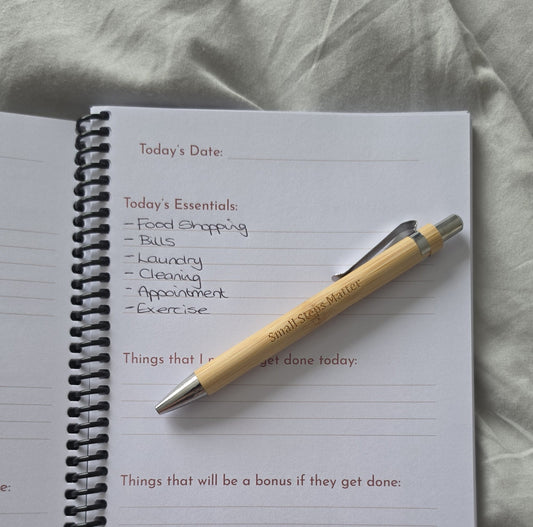 Today's Date:
Today's Essentials:
- Food Shopping
- Bills
- Laundry
- Cleaning
- Appointment
- Exercise
Small Steps Matter
Things that I get done today:
Things that will be a bonus if they get done:
e: